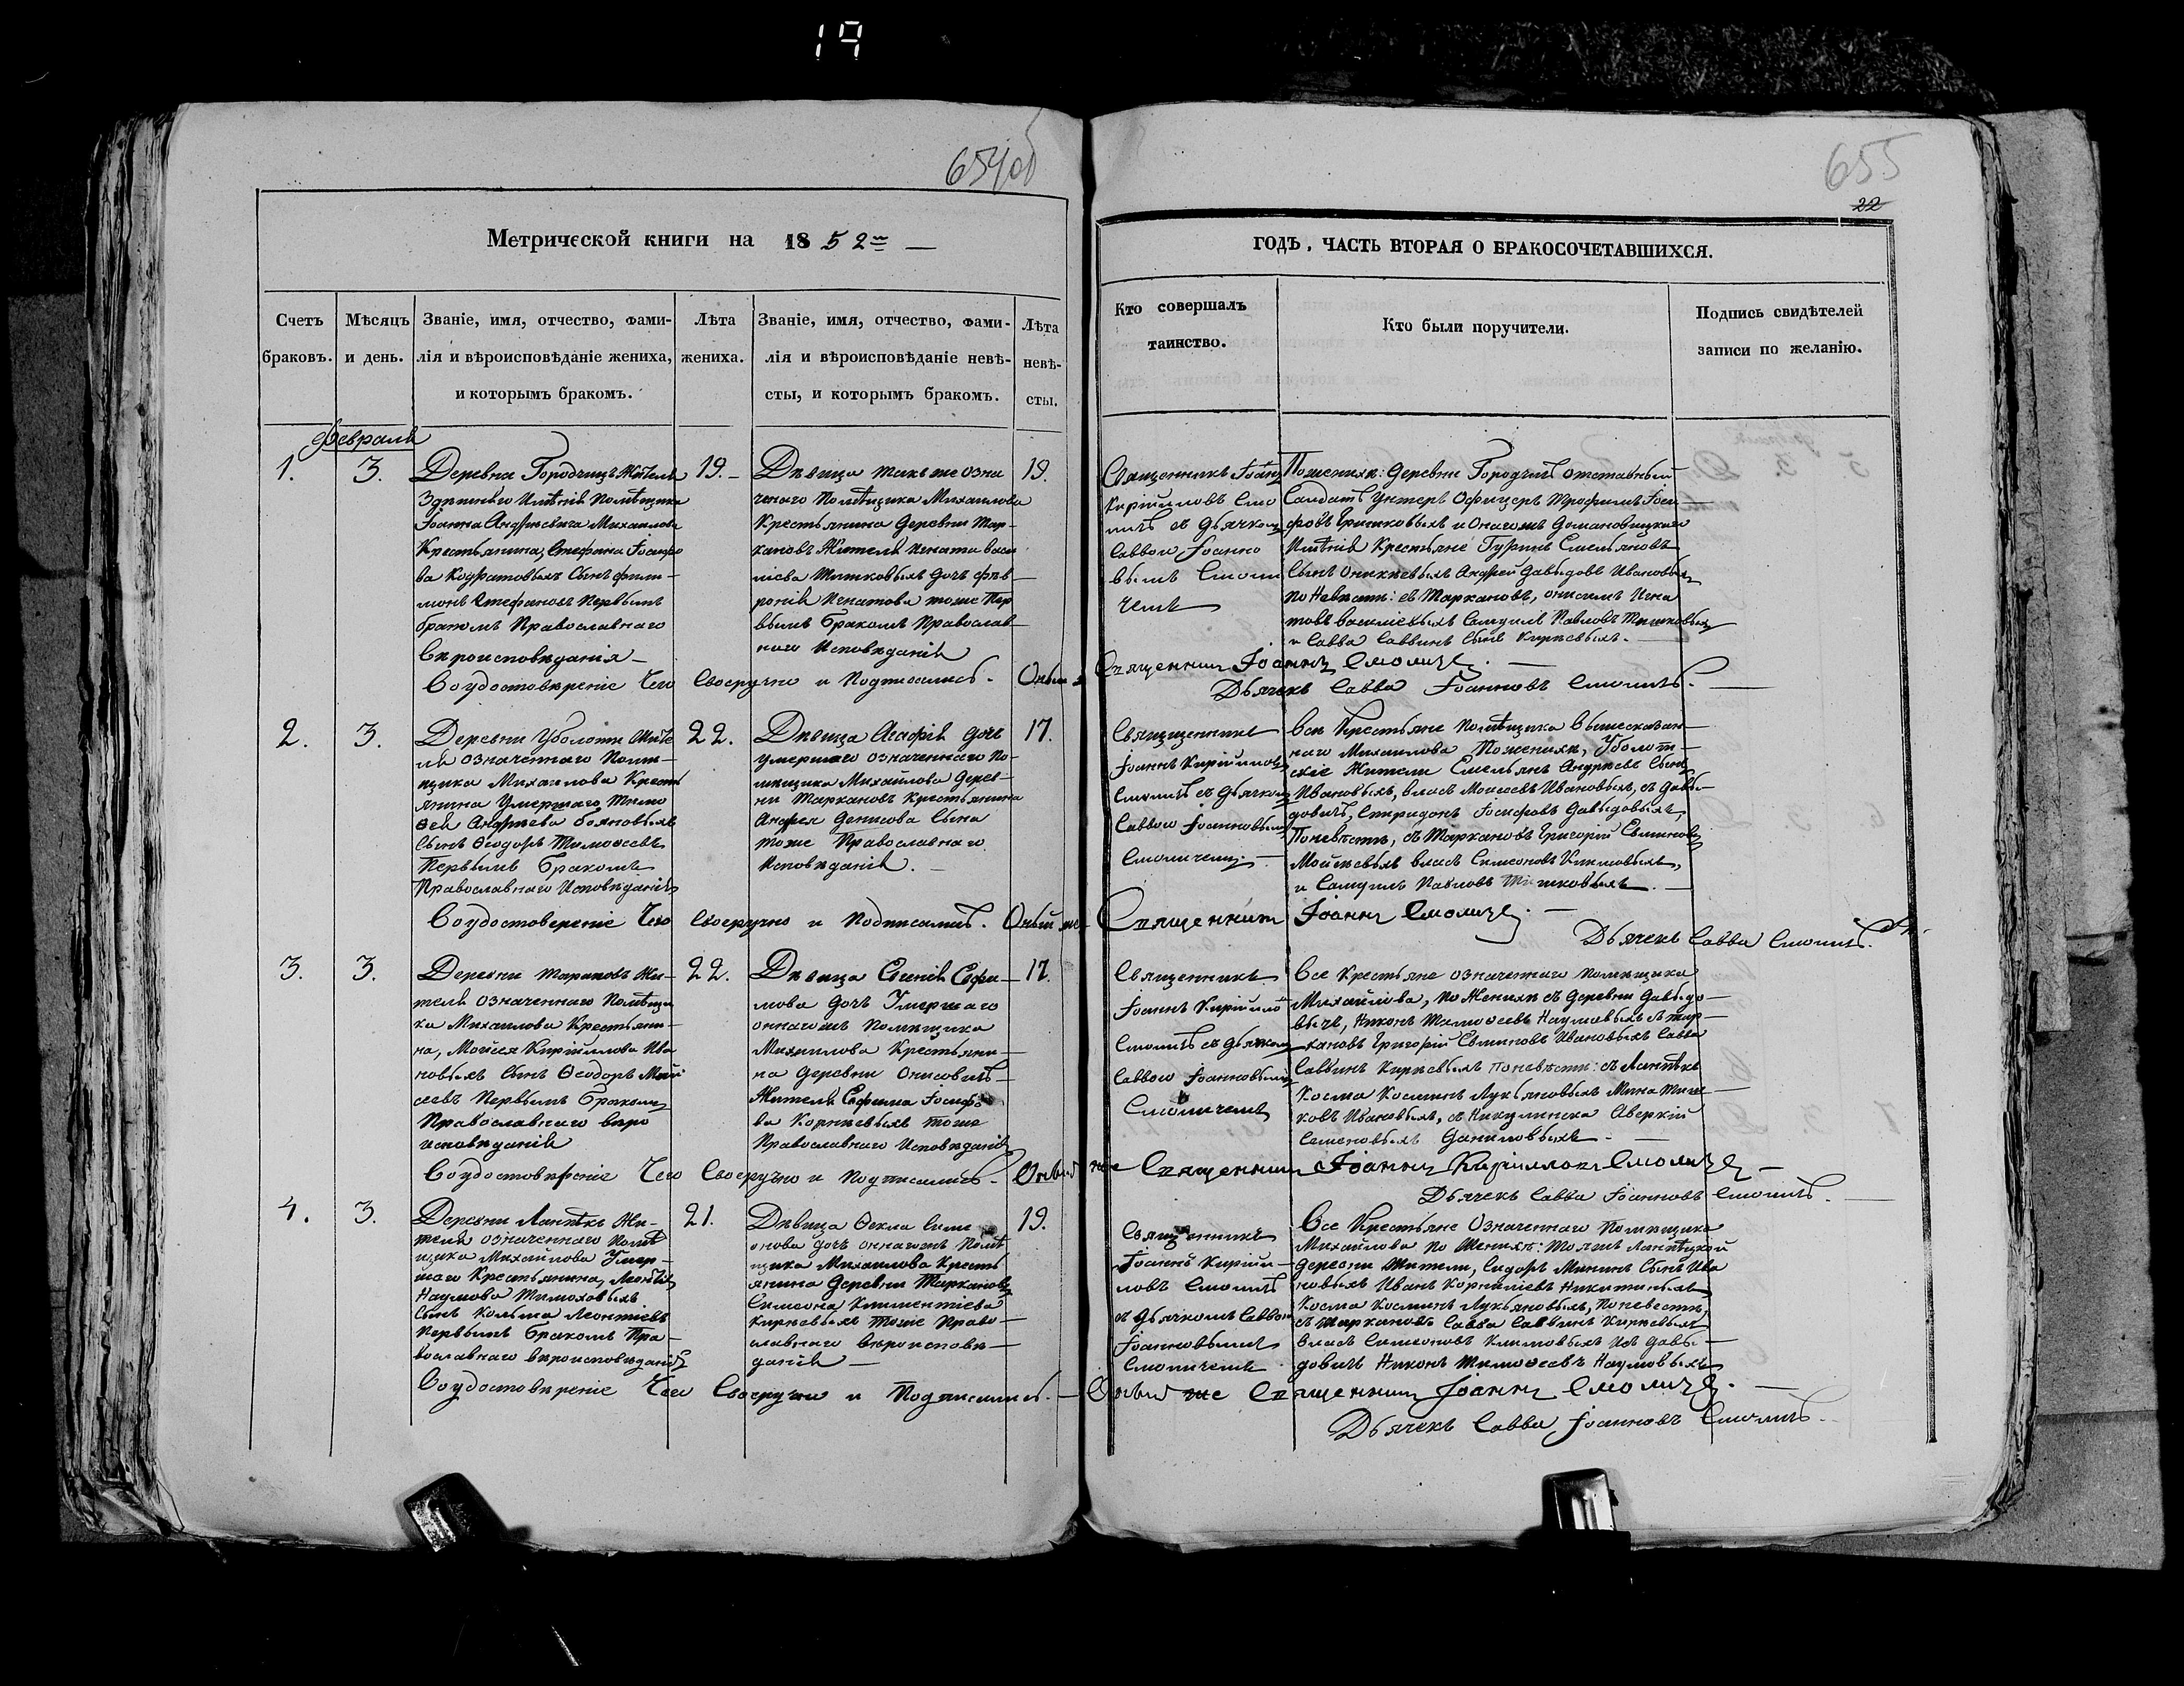 19
654об
655
22
Метрической книги на 1852 —
ГОДЪ, ЧАСТЬ ВТОРАЯ О БРАКОСОЧЕТАВШИХСЯ.
Счетъ браковъ.
Мѣсяцъ и день.
Званіе, имя, отчество, фами-
лія и вѣроисповѣданіе жениха,
и которымъ бракомъ.
Лѣта
жениха.
Званіе, имя, отчество, фами-
лія и вѣроисповѣданіе невѣ-
сты, и которымъ бракомъ.
Лѣта
невѣ-
сты.
Кто совершалъ
таинство.
Кто были поручители.
Подпись свидѣтелей
записи по желанію.
Февраля
1.
3.
Деревни Городчицъ Жителя
Здѣшняго Имѣнія Помѣщика
Іоанна Андреевича Михаилова
Крестьянина, Стефана Іосифо
ва Кодратовыхъ Сынъ Фили-
монъ Стефановъ Первымъ
бракомъ Православнаго
Вѣроисповѣданія —
19. —
Дѣвица такъ же озна
ченаго Помѣщика Михаилова
Крестьянина Деревни Тар-
кановъ Жителя Игната Васи
ліева Тишковыхъ дочь Фев-
ронія Игнатова тоже Пер
вымъ Бракомъ Православ-
наго Исповѣданія
19.
Священникъ Іоаннъ
Кириловъ Смо
личъ съ дьячкомъ
Саввою Іоанно
вымъ Смоли
чемъ
По женихѣ: деревни Городчицъ отставный
Солдатъ Унтеръ Офицеръ Трофимъ Іоси
фовъ Гришковыхъ и онагожъ Домановицкаго
Имѣнія Крестьяне Гуринъ Емельяновъ
Сынъ Оникѣевыхъ Андрей Давыдовъ Ивановыхъ
по Невѣсти: съ Таркановъ, Игна
товъ Василіевыхъ Самуилъ Павловъ Тишковыхъ
и Савва Саввинъ Сынъ Кирѣевыхъ. —
Воудостовѣреніе Чего Своеручно и Подписались. Оный же Священникъ Іоаннъ Смоличъ. —
Дьячекъ Савва Іоанновъ Смоличъ. —
2.
3.
Деревни Уболоти Жите
ля означеннаго Помѣ-
щика Михаилова Кресть
янина Умершаго Тимо
ѳея Андреева Бояновыхъ
Сынъ Ѳеодоръ Тимоѳеевъ
Первымъ Бракомъ
Православнаго Исповѣданія
22.
Дѣвица Агафія дочь
умершаго означеннаго По-
мѣщика Михайлова дерев-
ни Таркановъ Крестьянина
Андрея Денисова Сына
тоже Православнаго
Исповѣданія. —
17.
Священникъ
Іоаннъ Кириловъ
Смоличъ съ дьячкомъ
Саввою Іоанновымъ
Смоличемъ. —
Всѣ Крестьяне Помѣщика Вышесказан-
наго Михаилова По женихѣ, Уболот-
скіе Жители Емельянъ Андреевъ Сынъ
Ивановыхъ, Власъ Моисеевъ Ивановыхъ, съ Давы-
довичъ, Спиридонъ Іосифовъ Давыдовыхъ,
По невѣсти, съ Таркановъ Григорій
Мойсѣевыхъ Власъ Симеоновъ Климовыхъ,
и Самуилъ Павловъ Тишковыхъ. —
Воудостоверенiе Чего Своеручно и Подписались. Оный же Священникъ Іоаннъ Смоличъ. —
Дьячекъ Савва Смоличъ.
3.
3.
Деревни Таркановъ Жи-
теля означеннаго Помѣщи
ка Михаилова Крестьяни-
на, Мойсея Кирилова Ива
новыхъ Сынъ Ѳеодоръ Мой
сеевъ Первымъ Бракомъ
Православнаго вѣро
исповѣданія
22.
Дѣвица Евгенія Ефи-
мова дочь Умершаго
оннагожъ Помѣщика
Михаилова Крестьяни-
на деревни Онисовичъ
Жителя Ефима Іосифо
ва Корнѣевыхъ тоже
Православнаго Исповѣданія
17.
Священникъ
Іоаннъ Кирило
Смоличъ съ дьячкомъ
Саввою Іоанновымъ
Смоличемъ
Все Крестьяне означеннаго помѣщика
Михайлова, по Женихѣ съ деревни Давыдо-
вичъ, Никонъ Тимоѳеевъ Наумовыхъ съ Тар-
кановъ Григорій Ивановыхъ Савва
Саввинъ Кирѣевыхъ по невѣсти: съ Лапѣкъ
Косма Косминъ Лукъяновыхъ Мина Тиш-
ковъ Ивановыхъ, съ Никулинска Аверкій
Семеновыхъ Даниловыхъ. —
Воудостовѣреніе Чего Своеручно и Подписались. Оный же Священникъ Іоаннъ Кирилловъ Смоличъ —
Дьячекъ Савва Іоанновъ Смоличъ. —
4.
3.
Деревни Лапѣкъ Жи-
теля означеннаго Помѣ
щика Михайлова Умер-
шаго Крестьянина, Леонтія
Наумова Тимоховыхъ
Сынъ Козьма Леонтіевъ
Первымъ Бракомъ Пра-
вославнаго вѣроисповѣданія
21.
Дѣвица Ѳекла Симе
онова дочь оннагожъ Помѣ
щика Михаилова Кресть
янина Деревни Таркановъ
Симеона Климентіева
Кирѣевыхъ тоже Право-
славнаго вѣроисповѣ-
данія —
19.
Священникъ
Іоаннъ Кирил-
ловъ Смоличъ
съ дьячкомъ Саввою
Іоанновымъ
Смоличемъ
Все Крестьяне Означеннаго Помѣщика
Михайлова по Женихѣ: тояжъ Лапѣцкой
деревни Жители, Сидоръ Мининъ Сынъ Ива
новыхъ Иванъ Корниліевъ Никитиныхъ
Косма Косминъ Лукьяновыхъ, По невестѣ,
съ Таркановъ Савва Саввинъ Кирѣевыхъ
Власъ Симеоновъ Климовыхъ изъ Давы-
довичъ Никонъ Тимоѳеевъ Наумовыхъ
Воудостовѣреніе Чего Своеручно и Подписались. — Оный же Священникъ Іоаннъ Смоличъ. —
Дьячекъ Савва Іоанновъ Смоличъ.